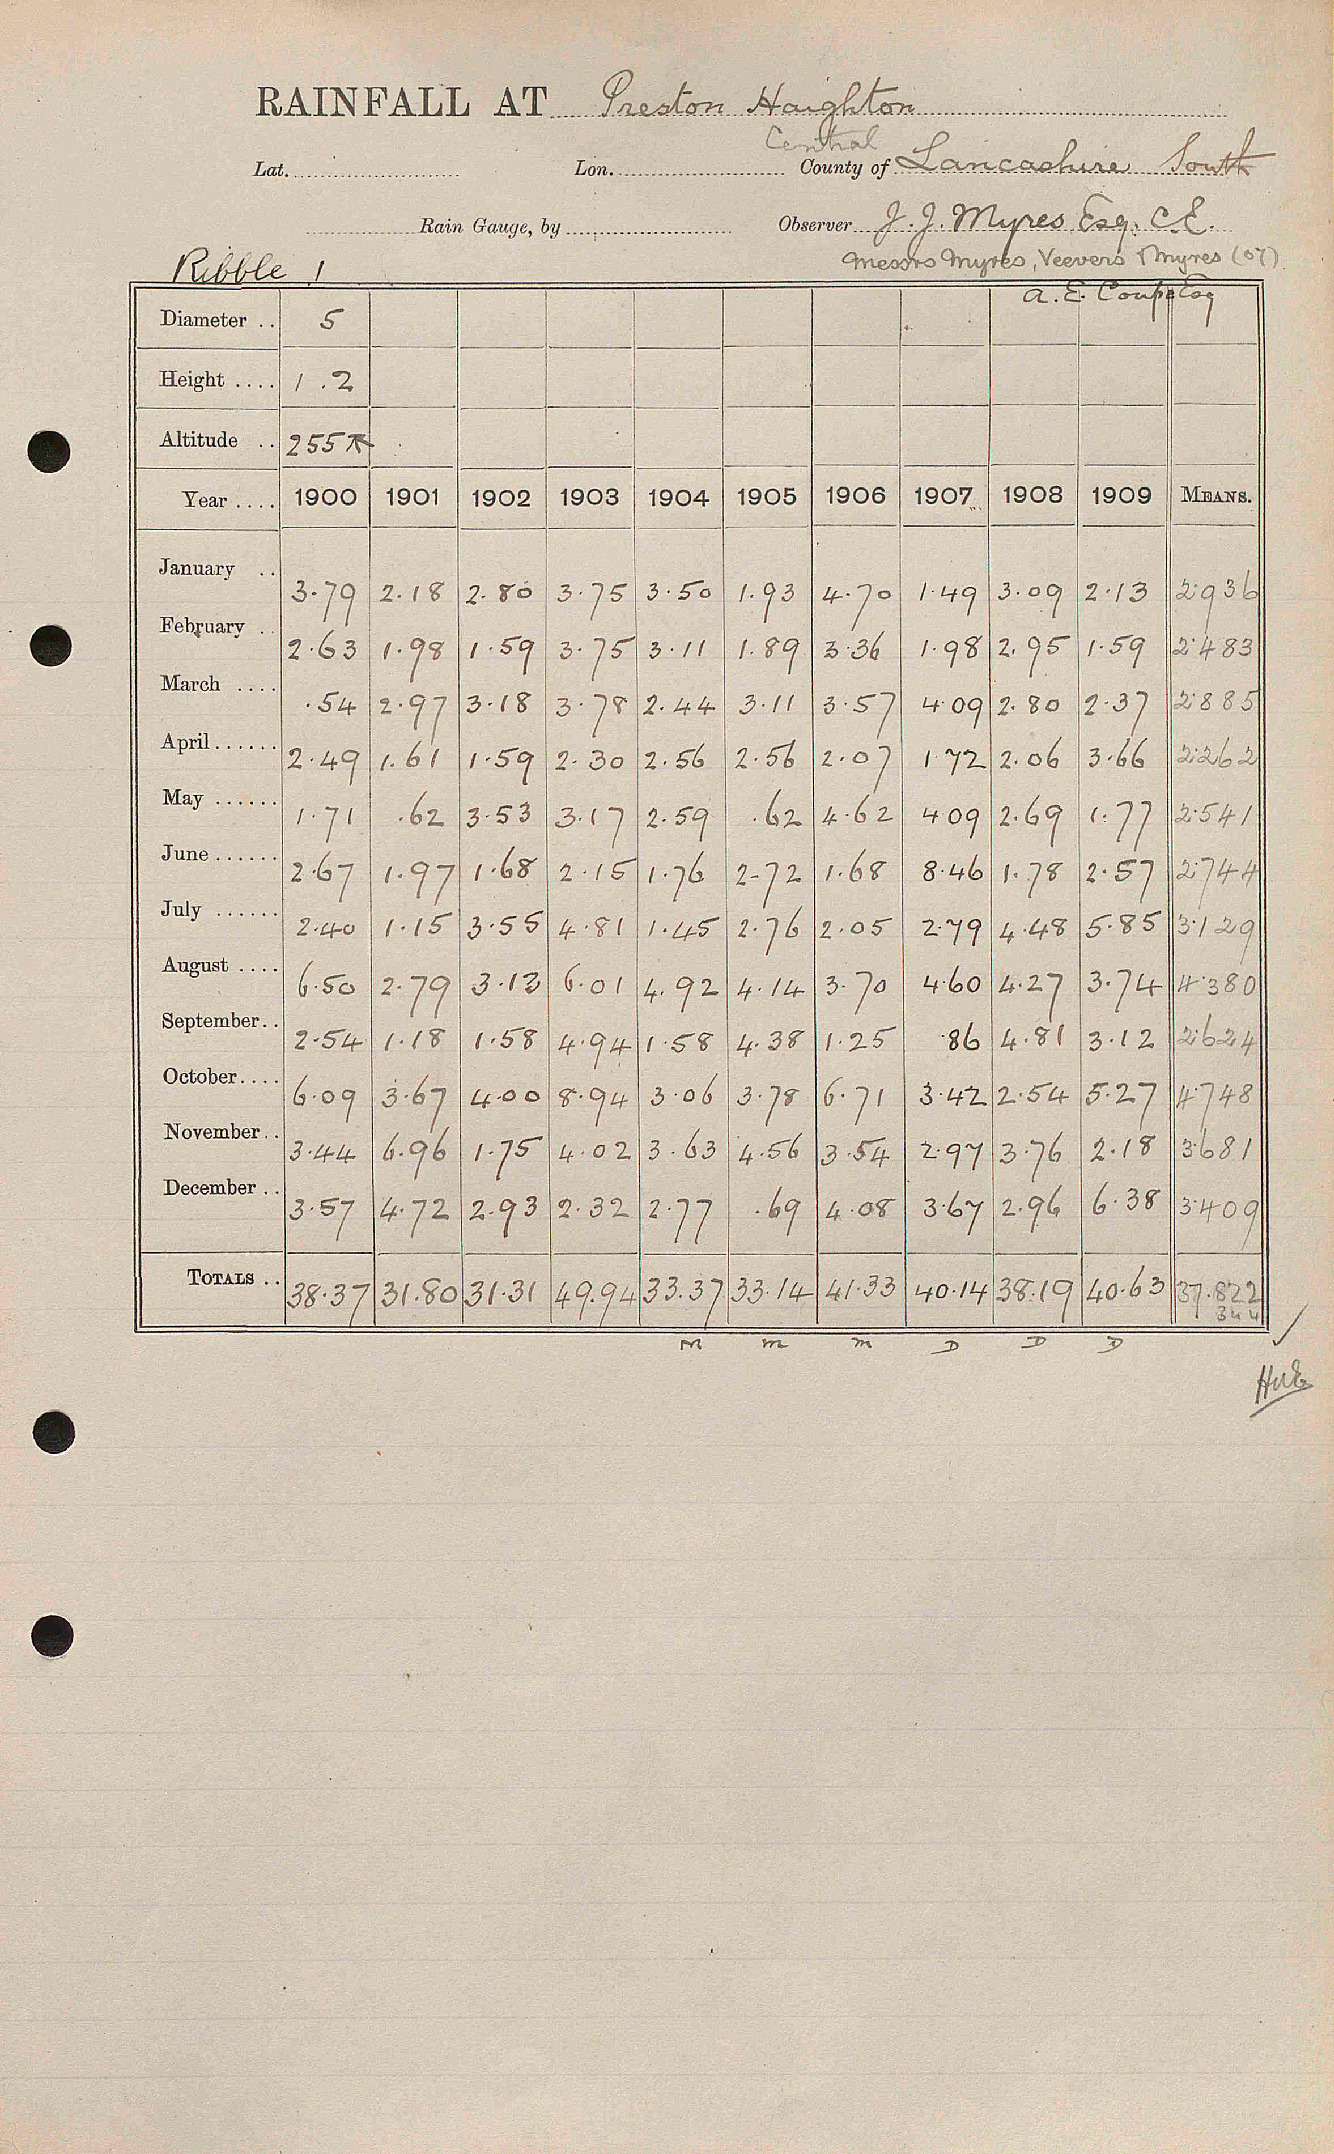 RAINFALL AT Preston Haighton
Central
Lat. Lon. County of Lancashire South
Rain Gauge, by Observer J. J. Myres Esq. C.E.
Messrs Myres, Veevers & Myres (07)
Ribble 1
A. E. Coupe Esq
Diameter .. 5
Height .... 1.2
Altitude .. 255
Year .... 1900 1901 1902 1903 1904 1905 1906 1907 1908 1909 MEANS.
January .. 3.79 2.18 2.80 3.75 3.50 1.93 4.70 1.49 3.09 2.13 2.936
February .. 2.63 1.98 1.59 3.75 3.11 1.89 3.36 1.98 2.95 1.59 2.483
March .... .54 2.97 3.18 3.78 2.44 3.11 3.57 4.09 2.80 2.37 2.885
April...... 2.49 1.61 1.59 2.30 2.56 2.56 2.07 1.72 2.06 3.66 2.262
May ...... 1.71 .62 3.53 3.17 2.59 .62 4.62 4.09 2.69 1.77 2.541
June...... 2.67 1.97 1.68 2.15 1.76 2.72 1.68 8.46 1.78 2.57 2.744
July ...... 2.40 1.15 3.55 4.81 1.45 2.76 2.05 2.79 4.48 5.85 3.129
August .... 6.50 2.79 3.13 6.01 4.92 4.14 3.70 4.60 4.27 3.74 4.380
September.. 2.54 1.18 1.58 4.94 1.58 4.38 1.25 .86 4.81 3.12 2.624
October.... 6.09 3.67 4.00 8.94 3.06 3.78 6.71 3.42 2.54 5.27 4.748
November.. 3.44 6.96 1.75 4.02 3.63 4.56 3.54 2.97 3.76 2.18 3.681
December .. 3.57 4.72 2.93 2.32 2.77 .69 4.08 3.67 2.96 6.38 3.409
TOTALS .. 38.37 31.80 31.31 49.94 33.37 33.14 41.33 40.14 38.19 40.63 37.822
344
M M M D D D